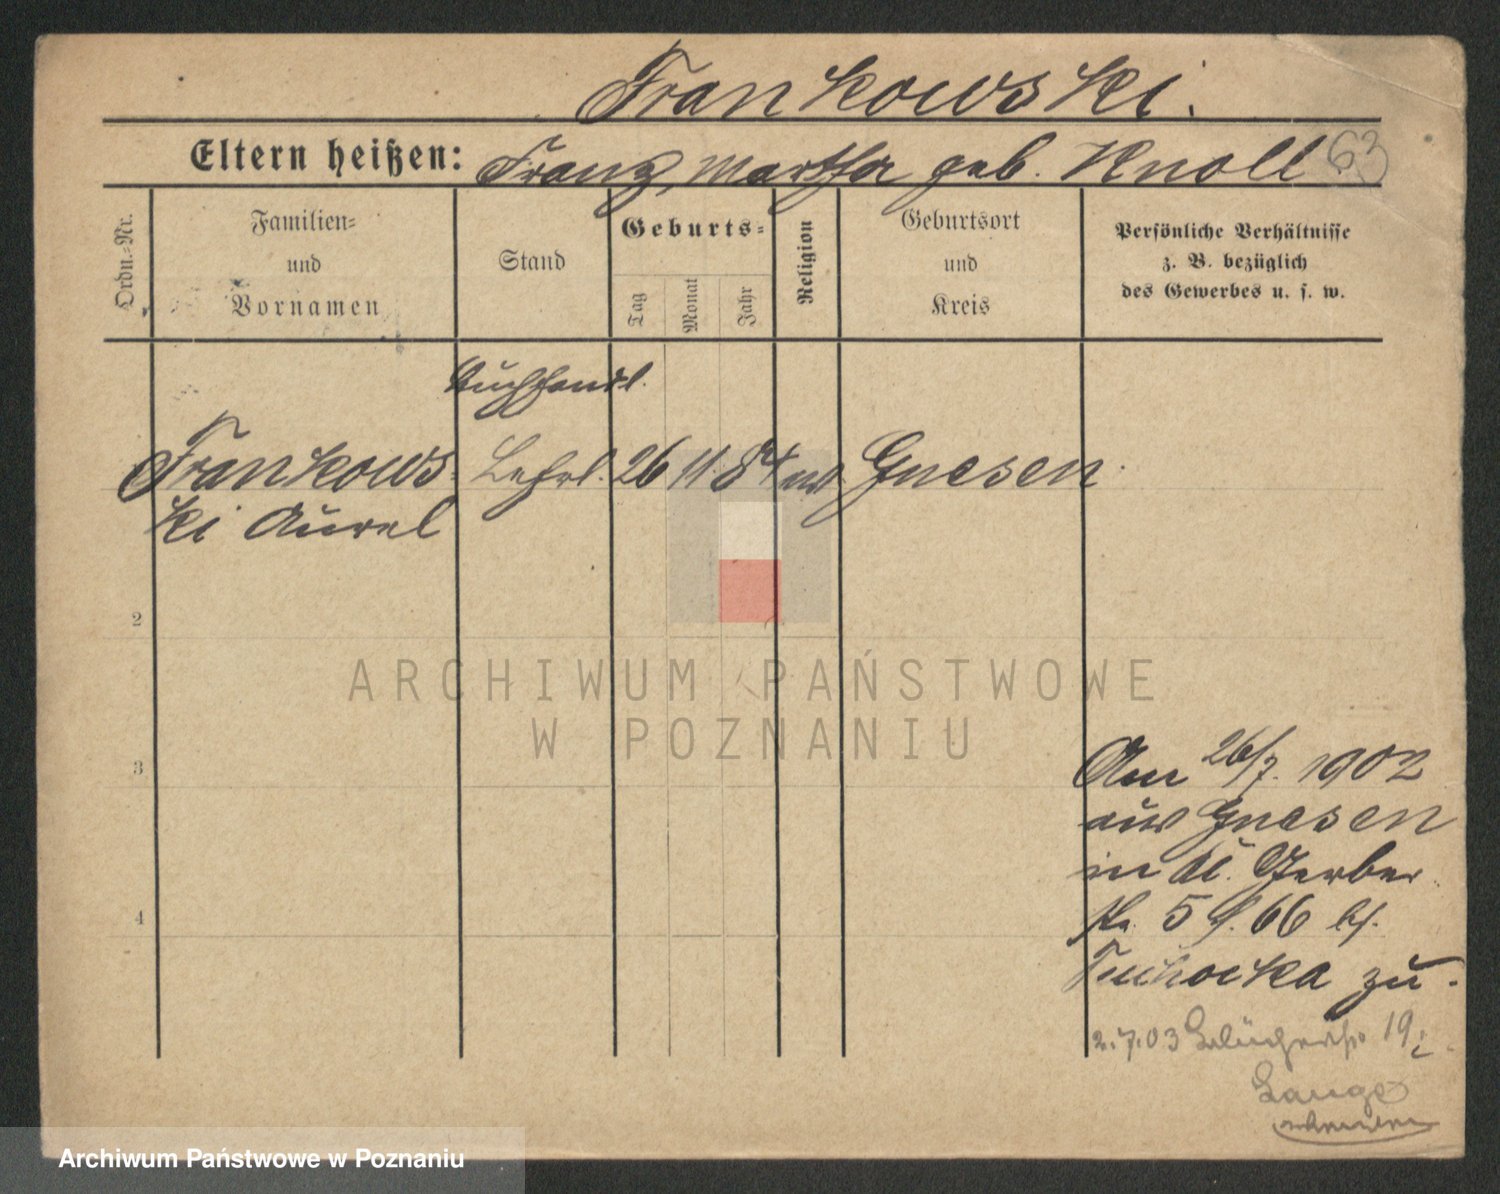 Frankowski.
Eltern heißen: Franz, Martha geb. Knoll 63
Ordn.-Nr.
Familien-
und
Vornamen
Stand
Geburts-
Tag
Monat
Jahr
Religion
Geburtsort
und
Kreis
Persönliche Verhältnisse
z. B. bezüglich
des Gewerbes u. s. w.
Buchhandl.
Frankows- Lehrl. 26 11. 84 Gnesen
ki Aurel
2
ARCHIWUM PAŃSTWOWE
W POZNANIU
3
4
Am 26/7. 1902
aus Gnesen
in Kl. Gerber
str. 5 66 bei
zu.
2.7.03 Blücherstr. 19
Lange
Archiwum Państwowe w Poznaniu